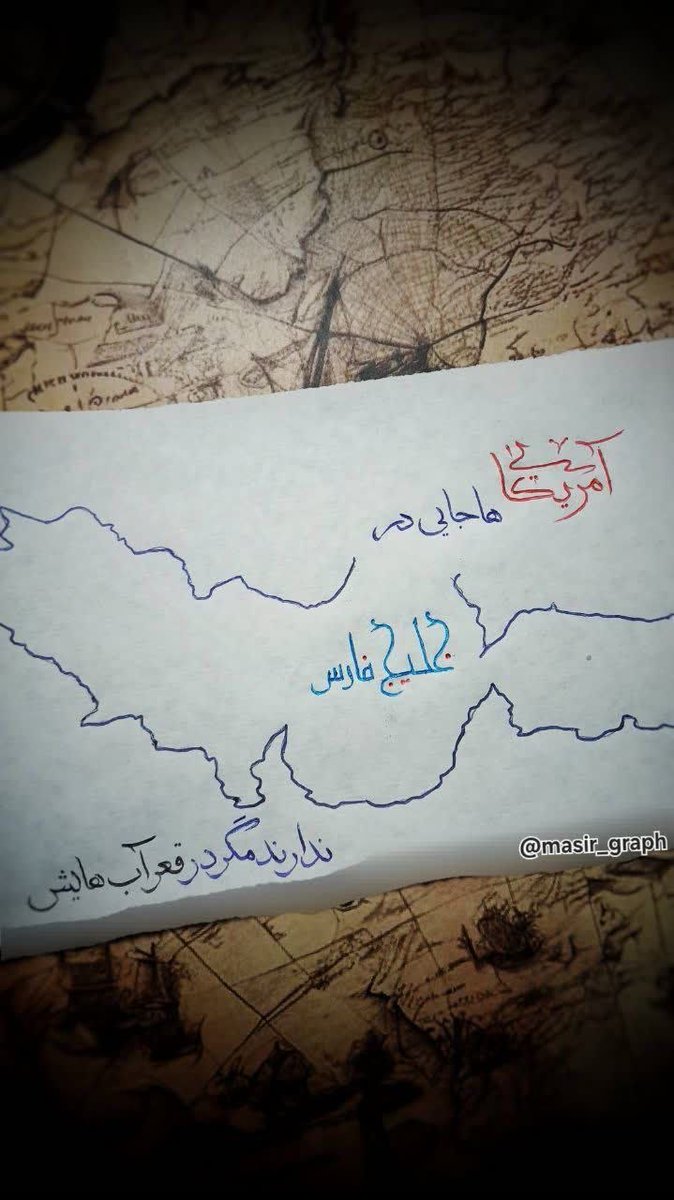 آمریکایی
ها جایی در
خلیج فارس
ندارند مگر در قعر آب هایش
@masir_graph